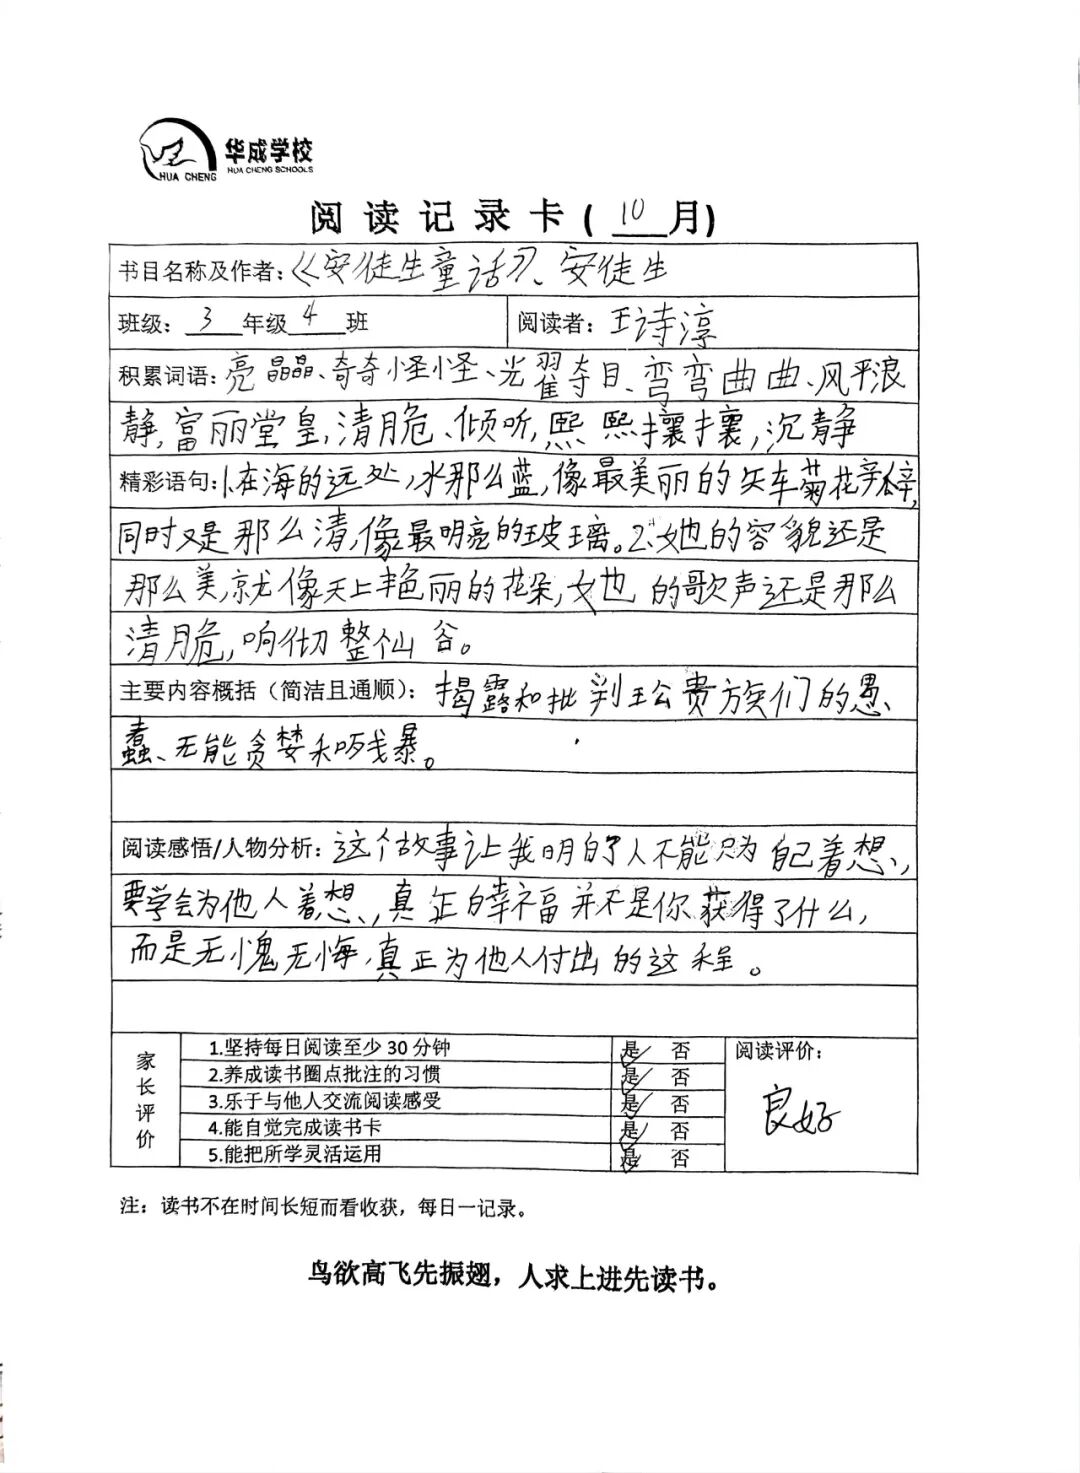 华成学校
HUA CHENG SCHOOLS
HUA CHENG
阅读记录卡(10月)
书目名称及作者:《安徒生童话》、安徒生
班级:3年级4班 阅读者:王诗淳
积累词语:亮晶晶、奇奇怪怪、光翟夺目、弯弯曲曲、风平浪
静,富丽堂皇,清脆、倾听,熙熙攘攘,沉静
精彩语句:1.在海的远处,水那么蓝,像最美丽的矢车菊花瓣,
同时又是那么清,像最明亮的玻璃。2.她的容貌还是
那么美,就像天上艳丽的花朵,她的歌声还是那么
清脆,响彻整个山谷。
主要内容概括(简洁且通顺):揭露和批判王公贵族们的愚
蠢、无能贪婪和残暴。
阅读感悟/人物分析:这个故事让我明白了人不能只为自己着想,
要学会为他人着想,真正的幸福并不是你获得了什么,
而是无愧无悔,真正为他人付出的这程。
家长评价
1.坚持每日阅读至少30分钟 是 否 阅读评价:
2.养成读书圈点批注的习惯 是 否
3.乐于与他人交流阅读感受 是 否 良好
4.能自觉完成读书卡 是 否
5.能把所学灵活运用 是 否
注:读书不在时间长短而看收获,每日一记录。
鸟欲高飞先振翅,人求上进先读书。